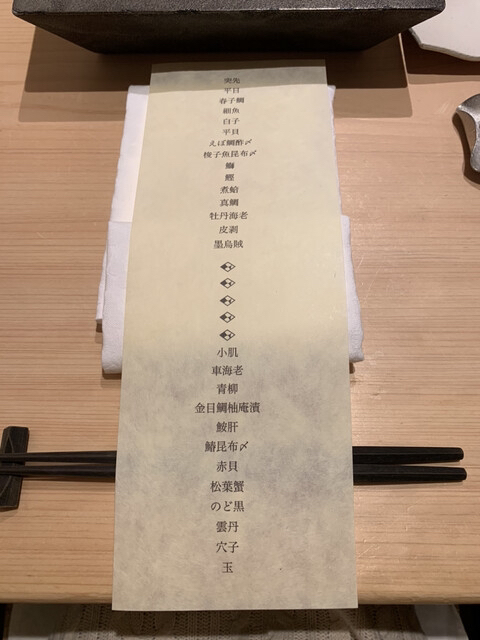 突先
平目
春子鯛
細魚
白子
平貝
えぼ鯛酢〆
梭子魚昆布〆
鰤
鰹
煮蛤
真鯛
牡丹海老
皮剥
墨烏賊
小肌
車海老
青柳
金目鯛柚庵漬
鮟肝
鰆昆布〆
赤貝
松葉蟹
のど黒
雲丹
穴子
玉